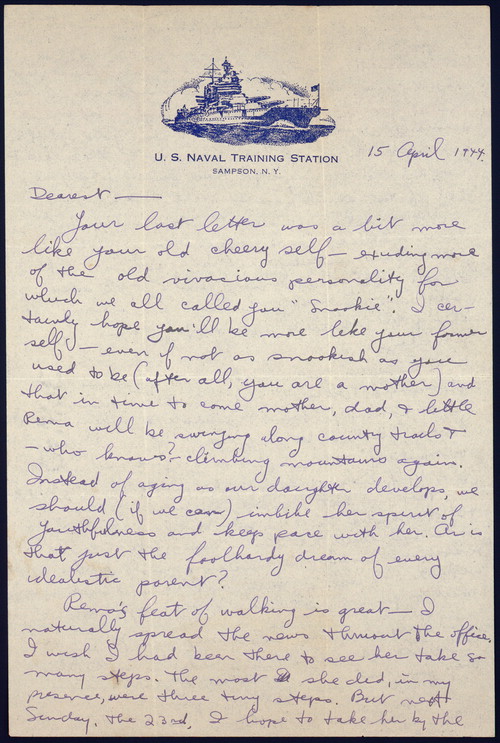 U. S. NAVAL TRAINING STATION
SAMPSON, N. Y.
15 April 1944.
Dearest —
Your last letter was a bit more
like your old cheery self — exuding more
of the old vivacious personality for
which we all called you "Snookie". I cer-
tainly hope you'll be more like your former
self — even if not as snookish as you
used to be (after all, you are a mother) and
that in time to come mother, dad, & little
Rena will be swinging along county trails &
— who knows? — climbing mountains again.
Instead of aging as our daughter develops, we
should (if we can) imbibe her spirit of
youthfulness and keep pace with her. Or is
that just the foolhardy dream of every
idealistic parent?
Rena's feat of walking is great — I
naturally spread the news thruout the office.
I wish I had been there to see her take so
many steps. The most she did, in my
presence, were three tiny steps. But next
Sunday, the 23rd, I hope to take her by the